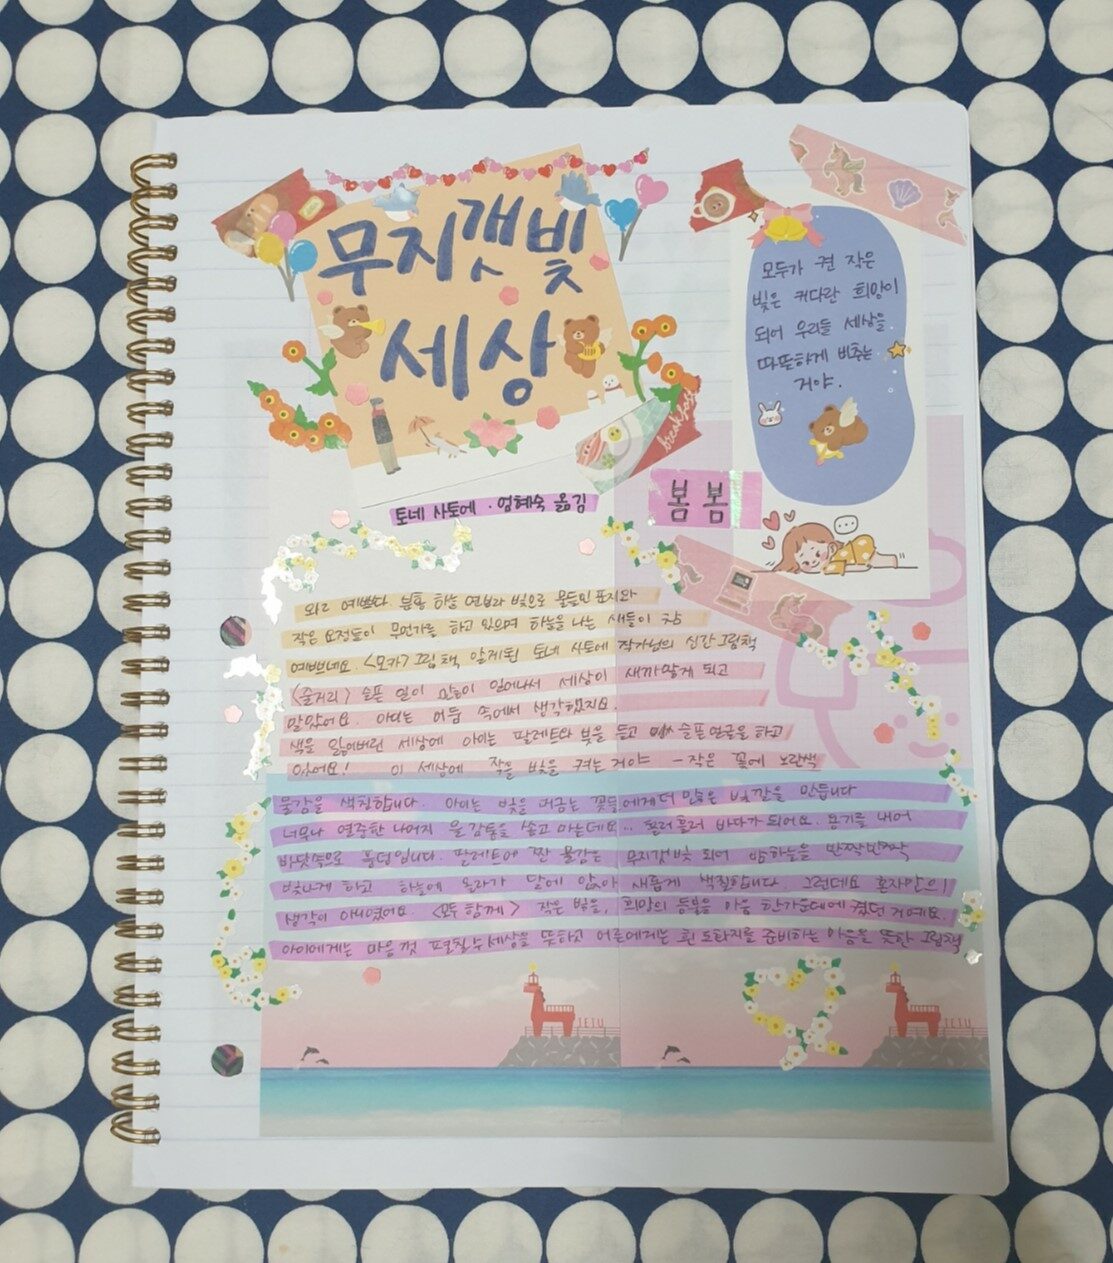 무지갯빛
세상
breakfast
모두가 켠 작은
빛은 커다란 희망이
되어 우리들 세상을
따뜻하게 비추는
거야.
토네 사토에 · 엄혜숙 옮김
봄봄
와~ 예쁘다 분홍 하늘 연보라 빛으로 물들인 표지와
작은 요정들이 무언가를 하고 있으며 하늘을 나는 새들이 참
예쁘네요. <모카> 그림책 알게된 토네 사토에 작가님의 신간그림책
<줄거리> 슬픈 일이 많이 일어나서 세상이 새까맣게 되고
말았어요. 아이는 어둠 속에서 생각했지요.
색을 잃어버린 세상에 아이는 팔레트와 붓을 들고 슬픈얼굴을 하고
있어요! 이 세상에 작은 빛을 켜는거야 - 작은 꽃에 노란색
물감을 색칠합니다. 아이는 빛을 머금은 꽃들에게 더 많은 빛깔을 만듭니다
너무나 열중한 나머지 물감통을 쏟고 마는데요... 흘러흘러 바다가 되어요. 용기를 내어
바닷속으로 풍덩입니다. 팔레트에 짠 물감은 무지갯빛 되어 밤하늘을 반짝반짝
빛나게 하고 하늘에 올라가 달에 앉아 새롭게 색칠합니다. 그런데요 혼자만의
생각이 아니었어요. <모두 함께> 작은 빛을, 희망의 등불을 마음 한가운데에 켰던 거예요.
아이에게는 마음껏 펼칠 수 세상을 뜻하고 어른에게는 흰 도화지를 준비하는 마음을 뜻한 그림책
JEJU
JEJU